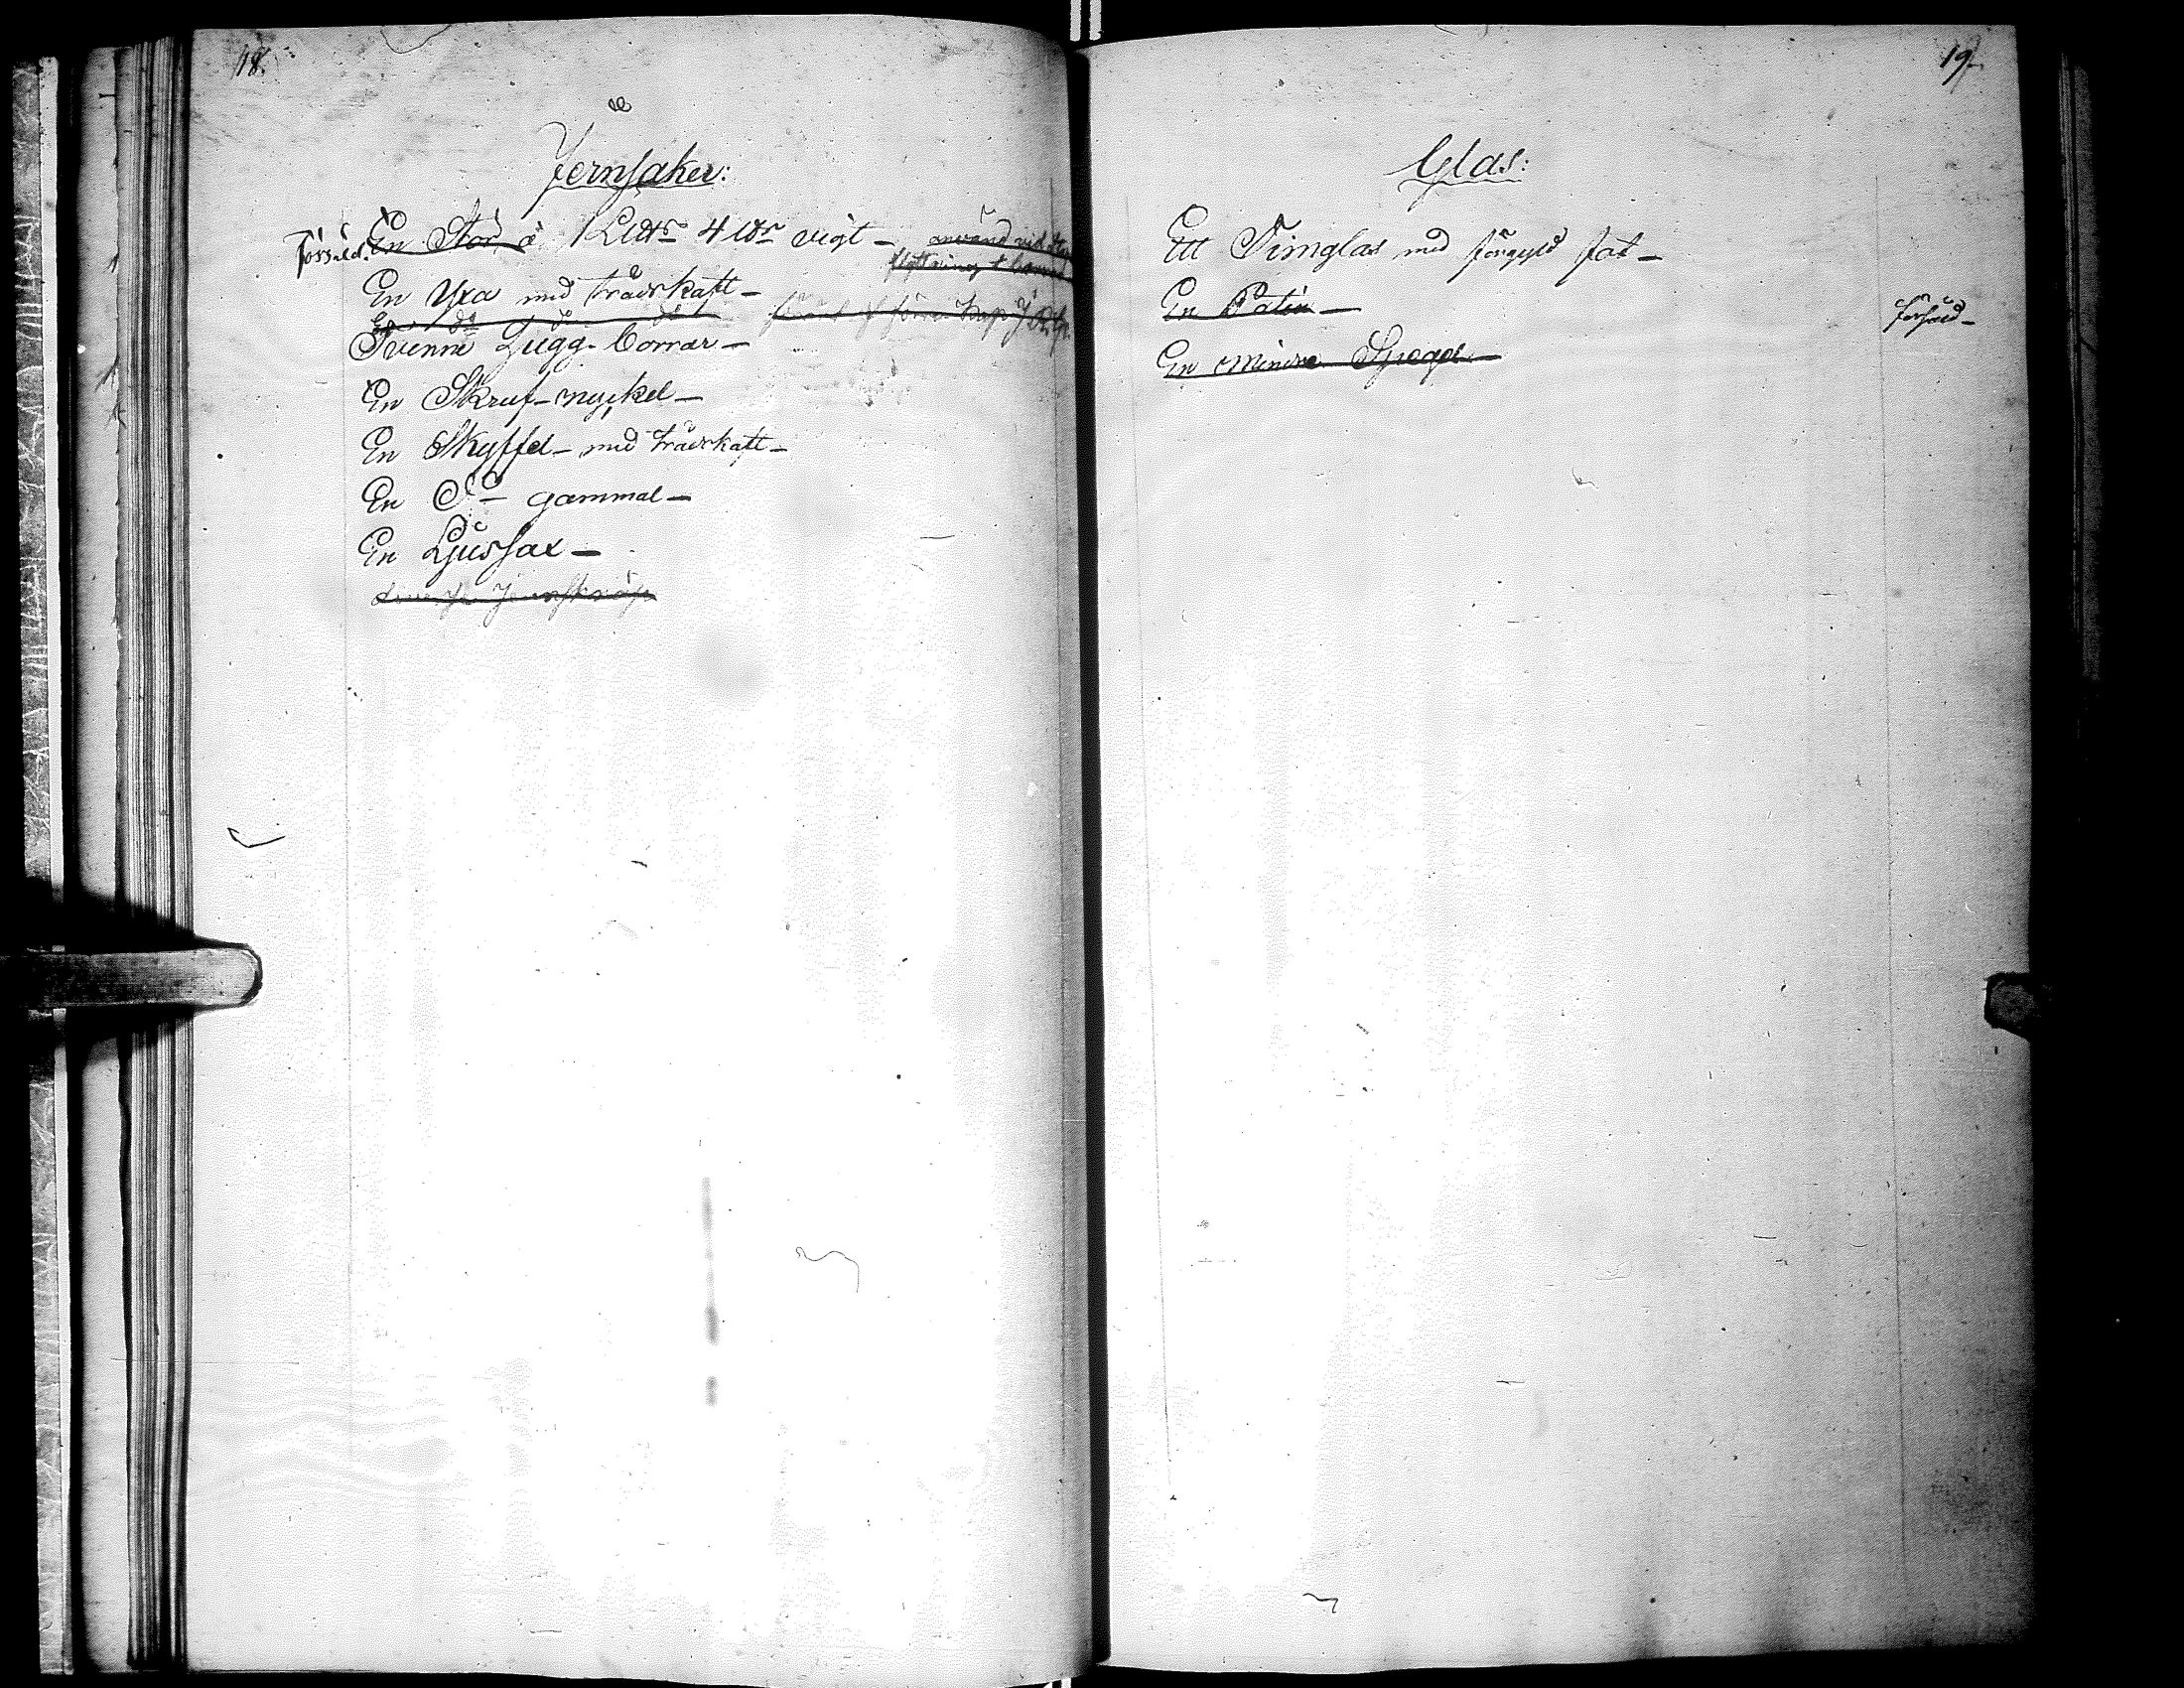 18.
Jernsaker:
Försåld. En Stör à 1 L℔r 4 ℔r vigt — använd vid
flyttning
En Yxa med träskaft —
En do do do
Tvenne Tugg-borrar —
En Skruf-nyckel —
En Skyffel — med träskaft —
En Do — gammal —
En Ljussax —
19.
Glas:
Ett Timglas med förgyld fot —
En Patin —
försåld —
En mindre Spegel —